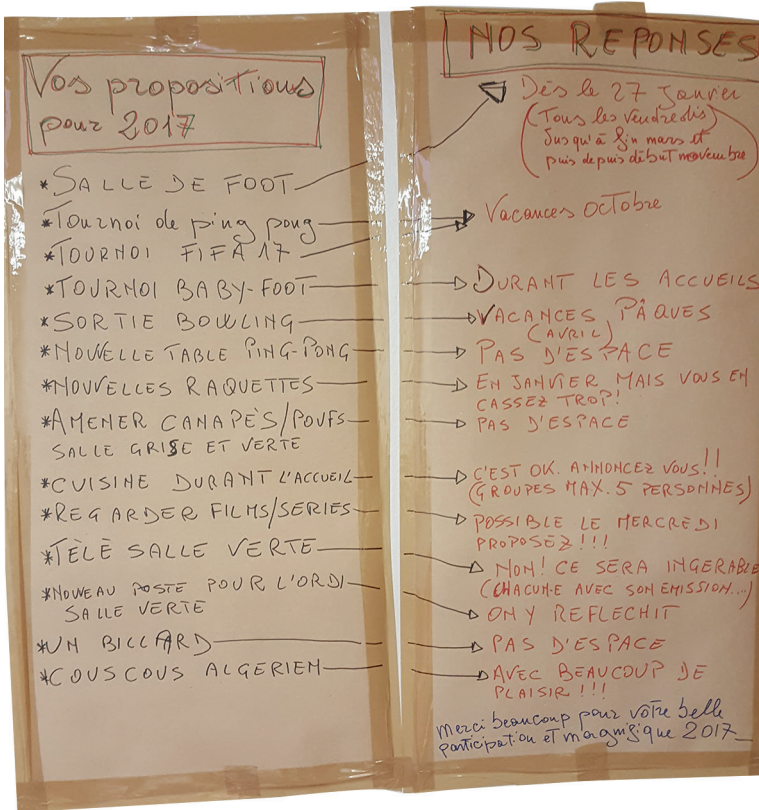 Vos propositions
pour 2017
*SALLE DE FOOT
*Tournoi de ping pong
*TOURNOI FIFA 17
*TOURNOI BABY-FOOT
*SORTIE BOWLING
*NOUVELLE TABLE PING-PONG
*NOUVELLES RAQUETTES
*AMENER CANAPÈS/POUFS
SALLE GRISE ET VERTE
*CUISINE DURANT L'ACCUEIL
*REGARDER FILMS/SERIES
*TÈLÈ SALLE VERTE
*NOUVEAU POSTE POUR L'ORDI
SALLE VERTE
*UN BILLARD
*COUSCOUS ALGERIEN
NOS REPONSES
Dès le 27 Janvier
(Tous les vendredis)
Jusqu'à fin mars et
puis depuis début novembre)
Vacances OCTOBRE
DURANT LES ACCUEILS
VACANCES PÂQUES
(AVRIL)
PAS D'ESPACE
EN JANVIER MAIS VOUS EN
CASSEZ TROP!
PAS D'ESPACE
C'EST OK. ANNONCEZ VOUS!!
(GROUPES MAX. 5 PERSONNES)
POSSIBLE LE MERCREDI
PROPOSEZ!!!
NON! CE SERA INGERABLE
(CHACUN·E AVEC SON EMISSION...)
ON Y REFLECHIT
PAS D'ESPACE
AVEC BEAUCOUP DE
PLAISIR!!!
Merci beaucoup pour votre belle
participation et magnifique 2017